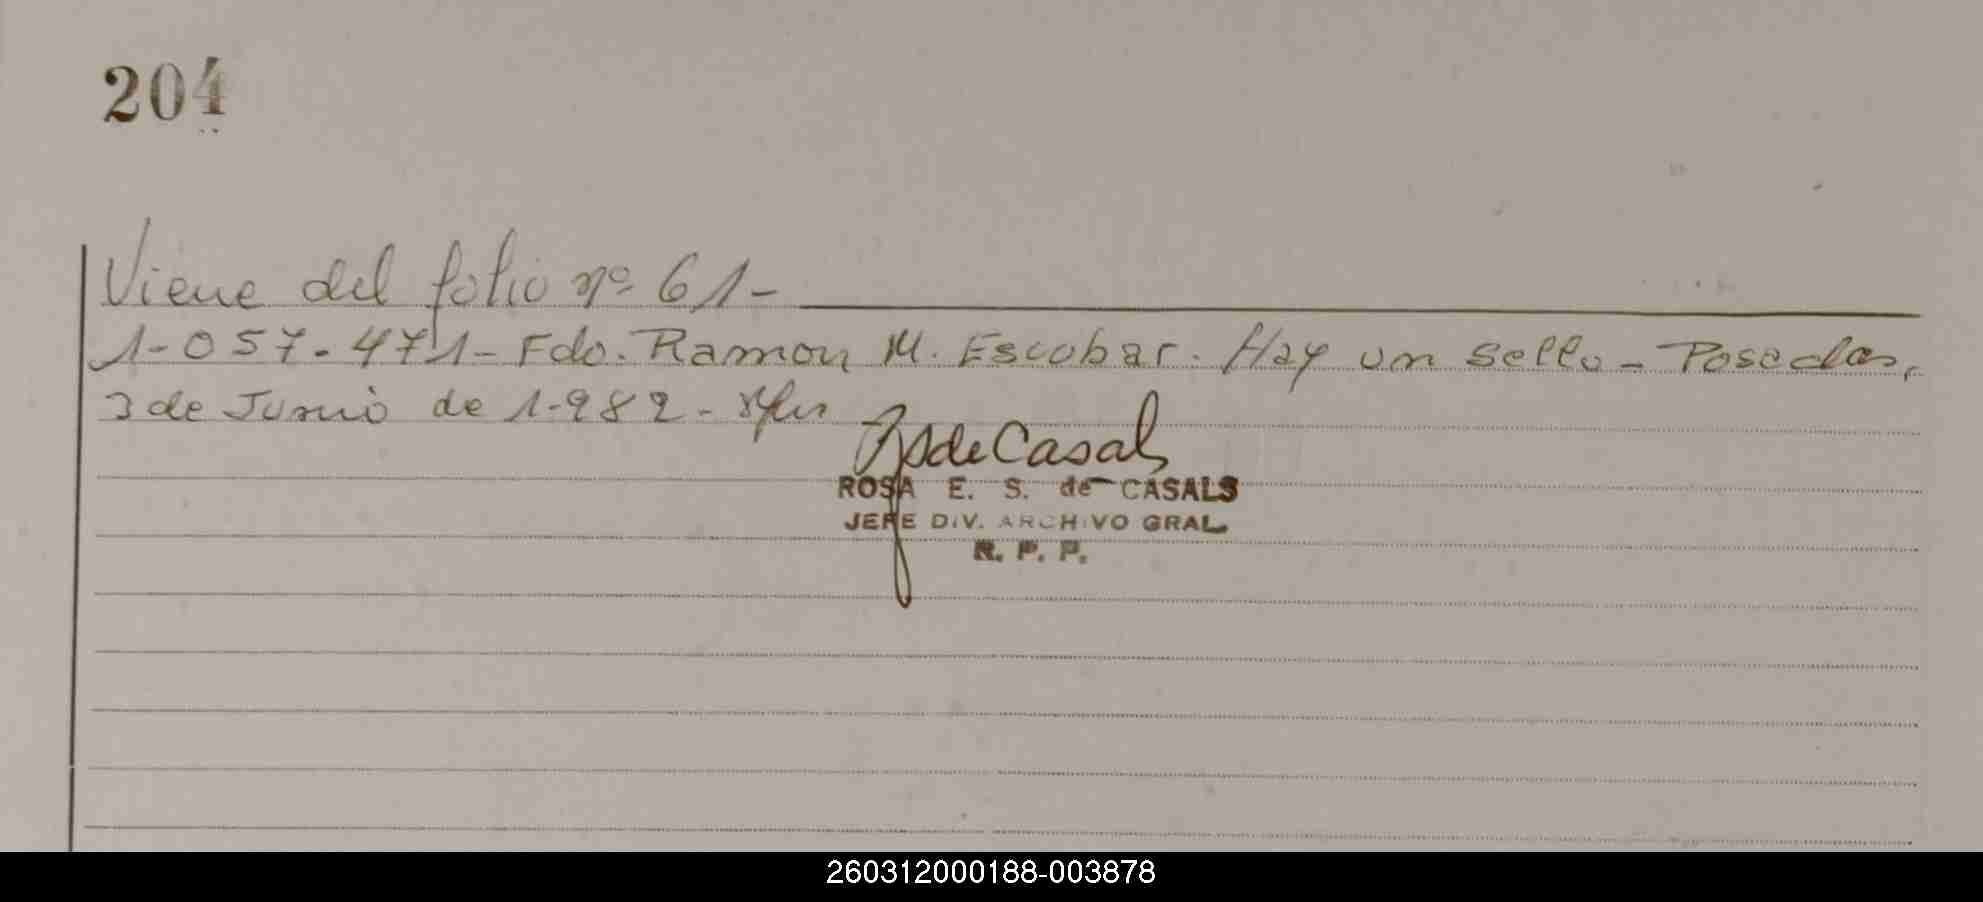 204
Viene del folio nº 61-
1-057.471- Fdo. Ramon M. Escobar. Hay un sello - Posadas,
3 de Junio de 1.982-
de Casals
ROSA E. S. de CASALS
JEFE DIV. ARCHIVO GRAL
R. P. P.
260312000188-003878